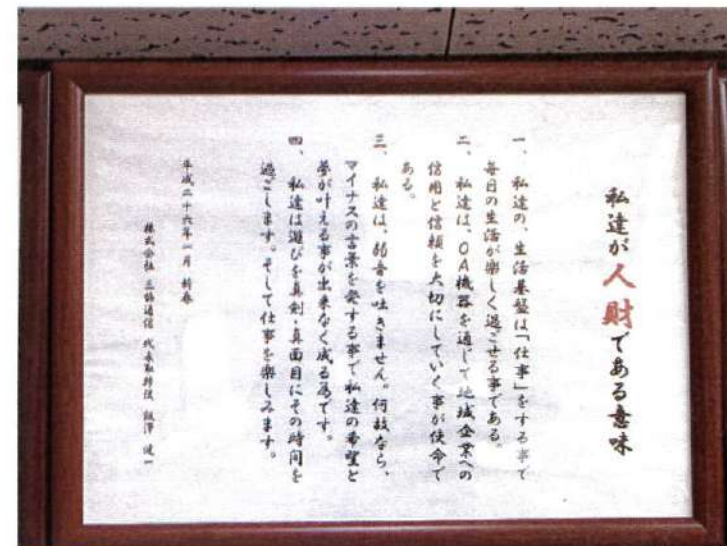 私達が人財である意味
一、私達の、生活基盤は「仕事」をする事で
毎日の生活が楽しく過ごせる事である。
二、私達は、OA機器を通じて地域企業への
信用と信頼を大切にしていく事が使命で
ある。
三、私達は、弱音を吐きません。何故なら、
マイナスの言葉を発する事で私達の希望と
夢が叶える事が出来なく成る為です。
四、私達は遊びを真剣・真面目にその時間を
過ごします。そして仕事を楽しみます。
平成二十六年一月 新春
株式会社 三協通信 代表取締役 飯澤 健一